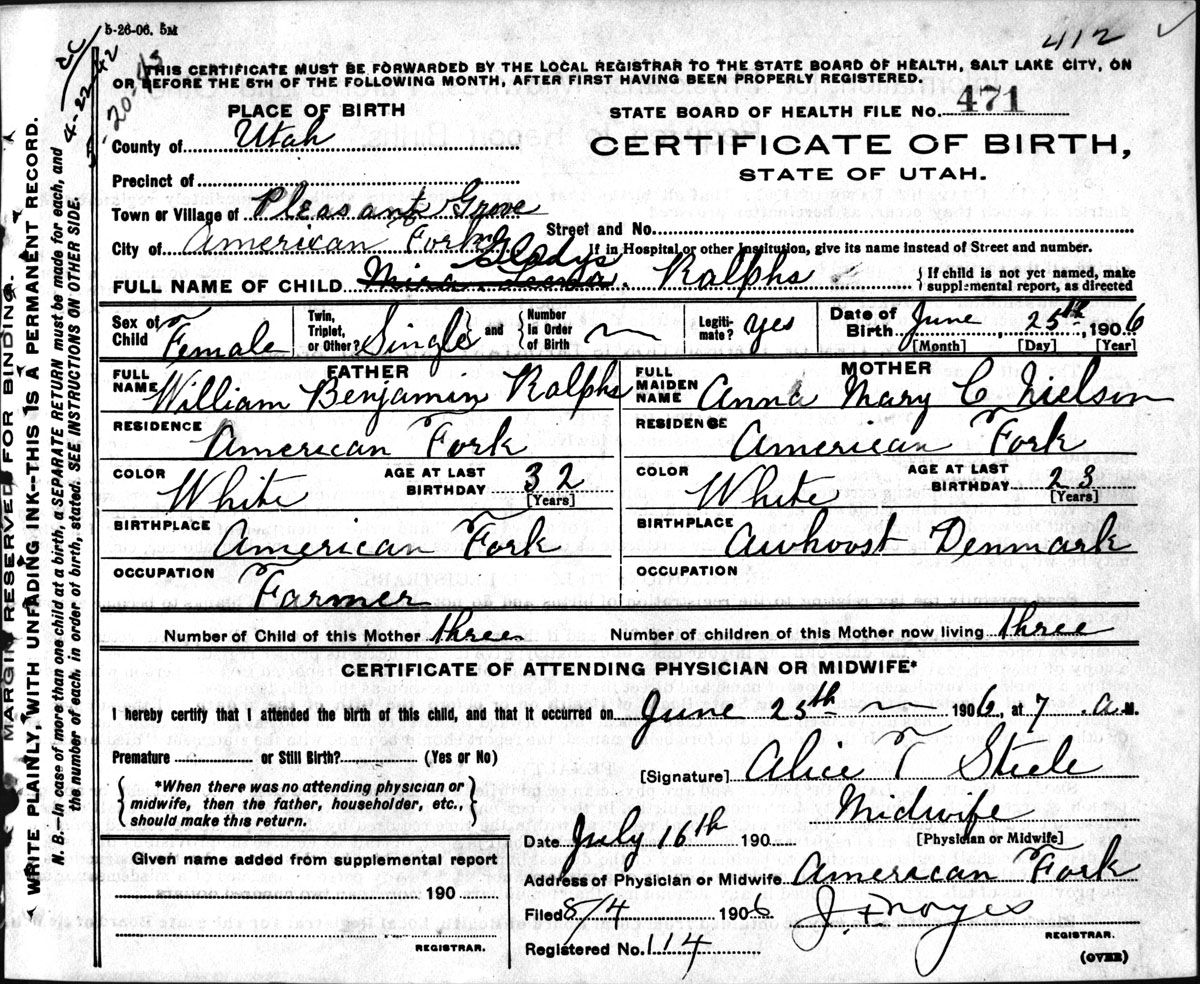 5-26-06. 5M
412
THIS CERTIFICATE MUST BE FORWARDED BY THE LOCAL REGISTRAR TO THE STATE BOARD OF HEALTH, SALT LAKE CITY, ON
OR BEFORE THE 5TH OF THE FOLLOWING MONTH, AFTER FIRST HAVING BEEN PROPERLY REGISTERED.
PLACE OF BIRTH
STATE BOARD OF HEALTH FILE No. 471
County of Utah
CERTIFICATE OF BIRTH,
STATE OF UTAH.
Precinct of
Town or Village of Pleasant Grove
Street and No.
City of American Fork
If in Hospital or other Institution, give its name instead of Street and number.
Gladys
FULL NAME OF CHILD Mira Ralphs
{If child is not yet named, make
supplemental report, as directed
Sex of Child Female
Twin, Triplet, or Other? Single and {Number in Order of Birth
Legiti-mate? yes
Date of Birth June 25th, 1906
[Month] [Day] [Year]
FATHER
FULL NAME William Benjamin Ralphs
MOTHER
FULL MAIDEN NAME Anna Mary C Nielson
RESIDENCE American Fork
RESIDENCE American Fork
COLOR White AGE AT LAST BIRTHDAY 32 [Years]
COLOR White AGE AT LAST BIRTHDAY 23 [Years]
BIRTHPLACE American Fork
BIRTHPLACE Awhoost Denmark
OCCUPATION Farmer
OCCUPATION
Number of Child of this Mother three
Number of children of this Mother now living three
CERTIFICATE OF ATTENDING PHYSICIAN OR MIDWIFE*
I hereby certify that I attended the birth of this child, and that it occurred on June 25th 1906, at 7 .a.M.
Premature or Still Birth? (Yes or No)
[Signature] Alice T Steele
{*When there was no attending physician or
midwife, then the father, householder, etc.,
should make this return.}
Midwife
[Physician or Midwife]
Date July 16th 190
Given name added from supplemental report
190
Address of Physician or Midwife American Fork
Filed 8/4 1906
J. F. Noyes
REGISTRAR.
REGISTRAR.
Registered No. 114
(OVER)
MARGIN RESERVED FOR BINDING.
WRITE PLAINLY, WITH UNFADING INK--THIS IS A PERMANENT RECORD.
N. B.--In case of more than one child at a birth, a SEPARATE RETURN must be made for each, and
the number of each, in order of birth, stated. SEE INSTRUCTIONS ON OTHER SIDE.
4-22-42